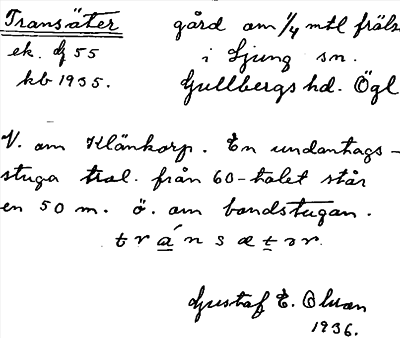 Transäter gård om 1/4 mtl fräls
ek. bf 55 i Ljung sn.
kb 1935. Gullbergs hd. Ögl
V. om Klänkorp. En undantags-
stuga tral. från 60-talet står
en 50 m. ö. om bondstugan.
t r á n s æ t ə r
Gustaf E. Olson
1936.